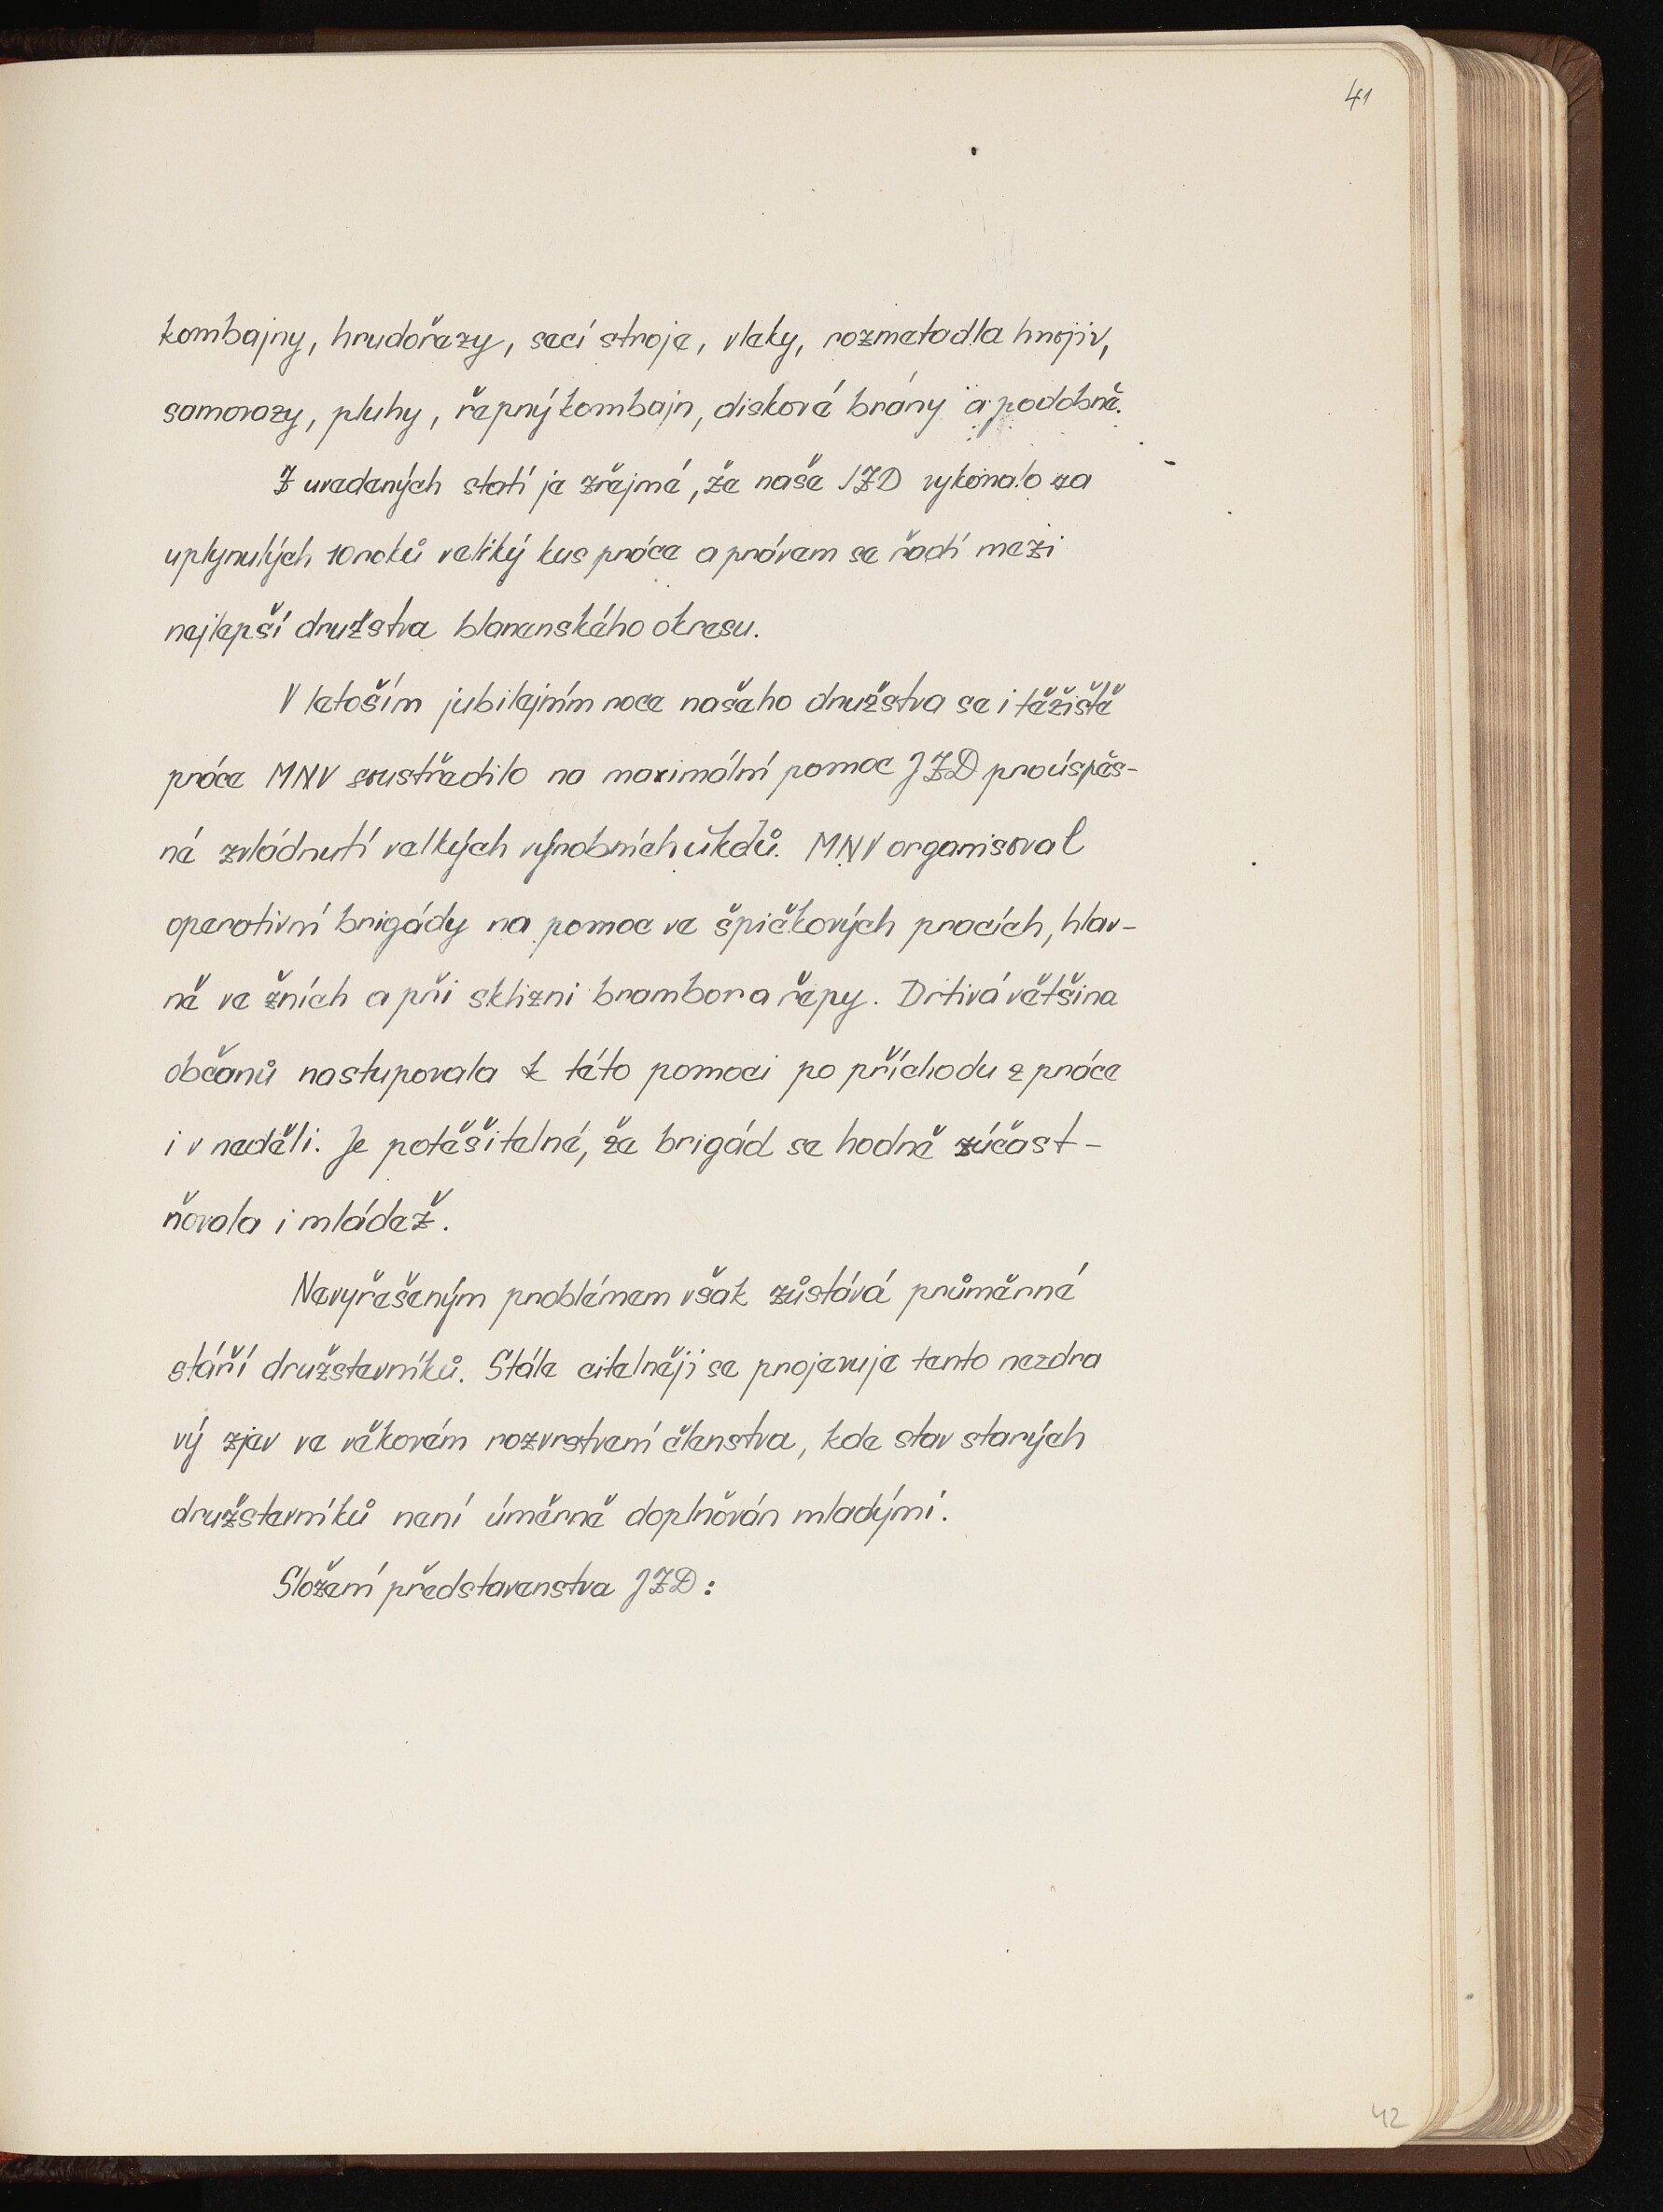 41
kombajny, hrudořezy, secí stroje, vleky, rozmetadla hnojiv,
samovazy, pluhy, řepný kombajn, diskové brány a podobně.
Z uvedených statí je zřejmé, že naše JZD vykonalo za
uplynulých 10 roků veliký kus práce a právem se řadí mezi
nejlepší družstva blanenského okresu.
V letoším jubilejním roce našeho družstva se i těžiště
práce MNV soustředilo na maximální pomoc JZD pro úspěs-
né zvládnutí velkých výrobních úkdů. MNV organisoval
operativní brigády na pomoc ve špičkových pracích, hlav-
ně ve žních a při sklizni brambor a řepy. Drtivá většina
občanů nastupovala k této pomoci po příchodu z práce
i v neděli. Je potěšitelné, že brigád se hodně zúčast-
ňovala i mládež.
Nevyřešeným problémem však zůstává průměrné
stáří družstevníků. Stále citelněji se projevuje tento nezdra
vý zjev ve věkovém rozvrstvení členstva, kde stav starých
družstevníků není úměrně doplňován mladými.
Složení představenstva JZD:
42